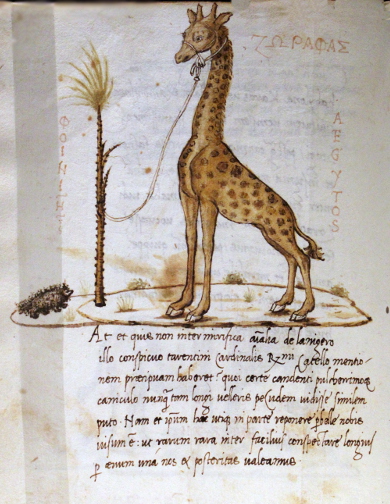 ΖΩΡΑΦΑΣ
ΦΟΙΝΙ
AEGYTOS
At et quis non inter mirifica de lanigero
illo conspicuo tarentini Cardinalis R Catello mentio-
nem præcipuam haberet? quoi certe candenti pulcherrimoq
caniculo nunq tam longi velleris pecudem vidisse similem
puto. Nam et ipsum hac utiq in parte reponere nobis
visum e: ut rarum rara inter facilius conspectare longius
p ævum una nos et posteritas valeamus